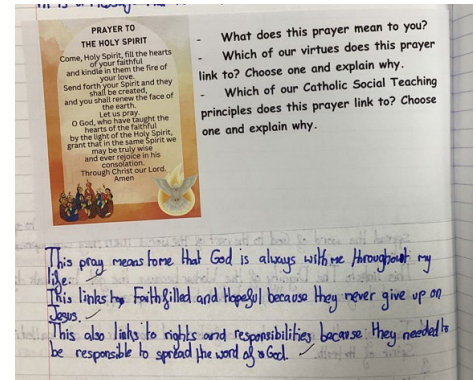 PRAYER TO
THE HOLY SPIRIT
Come, Holy Spirit, fill the hearts
of your faithful
and kindle in them the fire of
your love.
Send forth your Spirit and they
shall be created,
and you shall renew the face of
the earth.
Let us pray.
O God, who have taught the
hearts of the faithful
by the light of the Holy Spirit,
grant that in the same Spirit we
may be truly wise
and ever rejoice in his
consolation.
Through Christ our Lord.
Amen
- What does this prayer mean to you?
- Which of our virtues does this prayer
link to? Choose one and explain why.
- Which of our Catholic Social Teaching
principles does this prayer link to? Choose
one and explain why.
This pray means to me that God is always with me throughout my
life.
This links to Faithfilled and Hopeful because they never give up on
Jesus.
This also links to rights and responsibilities because they needed to
be responsible to spread the word of God.